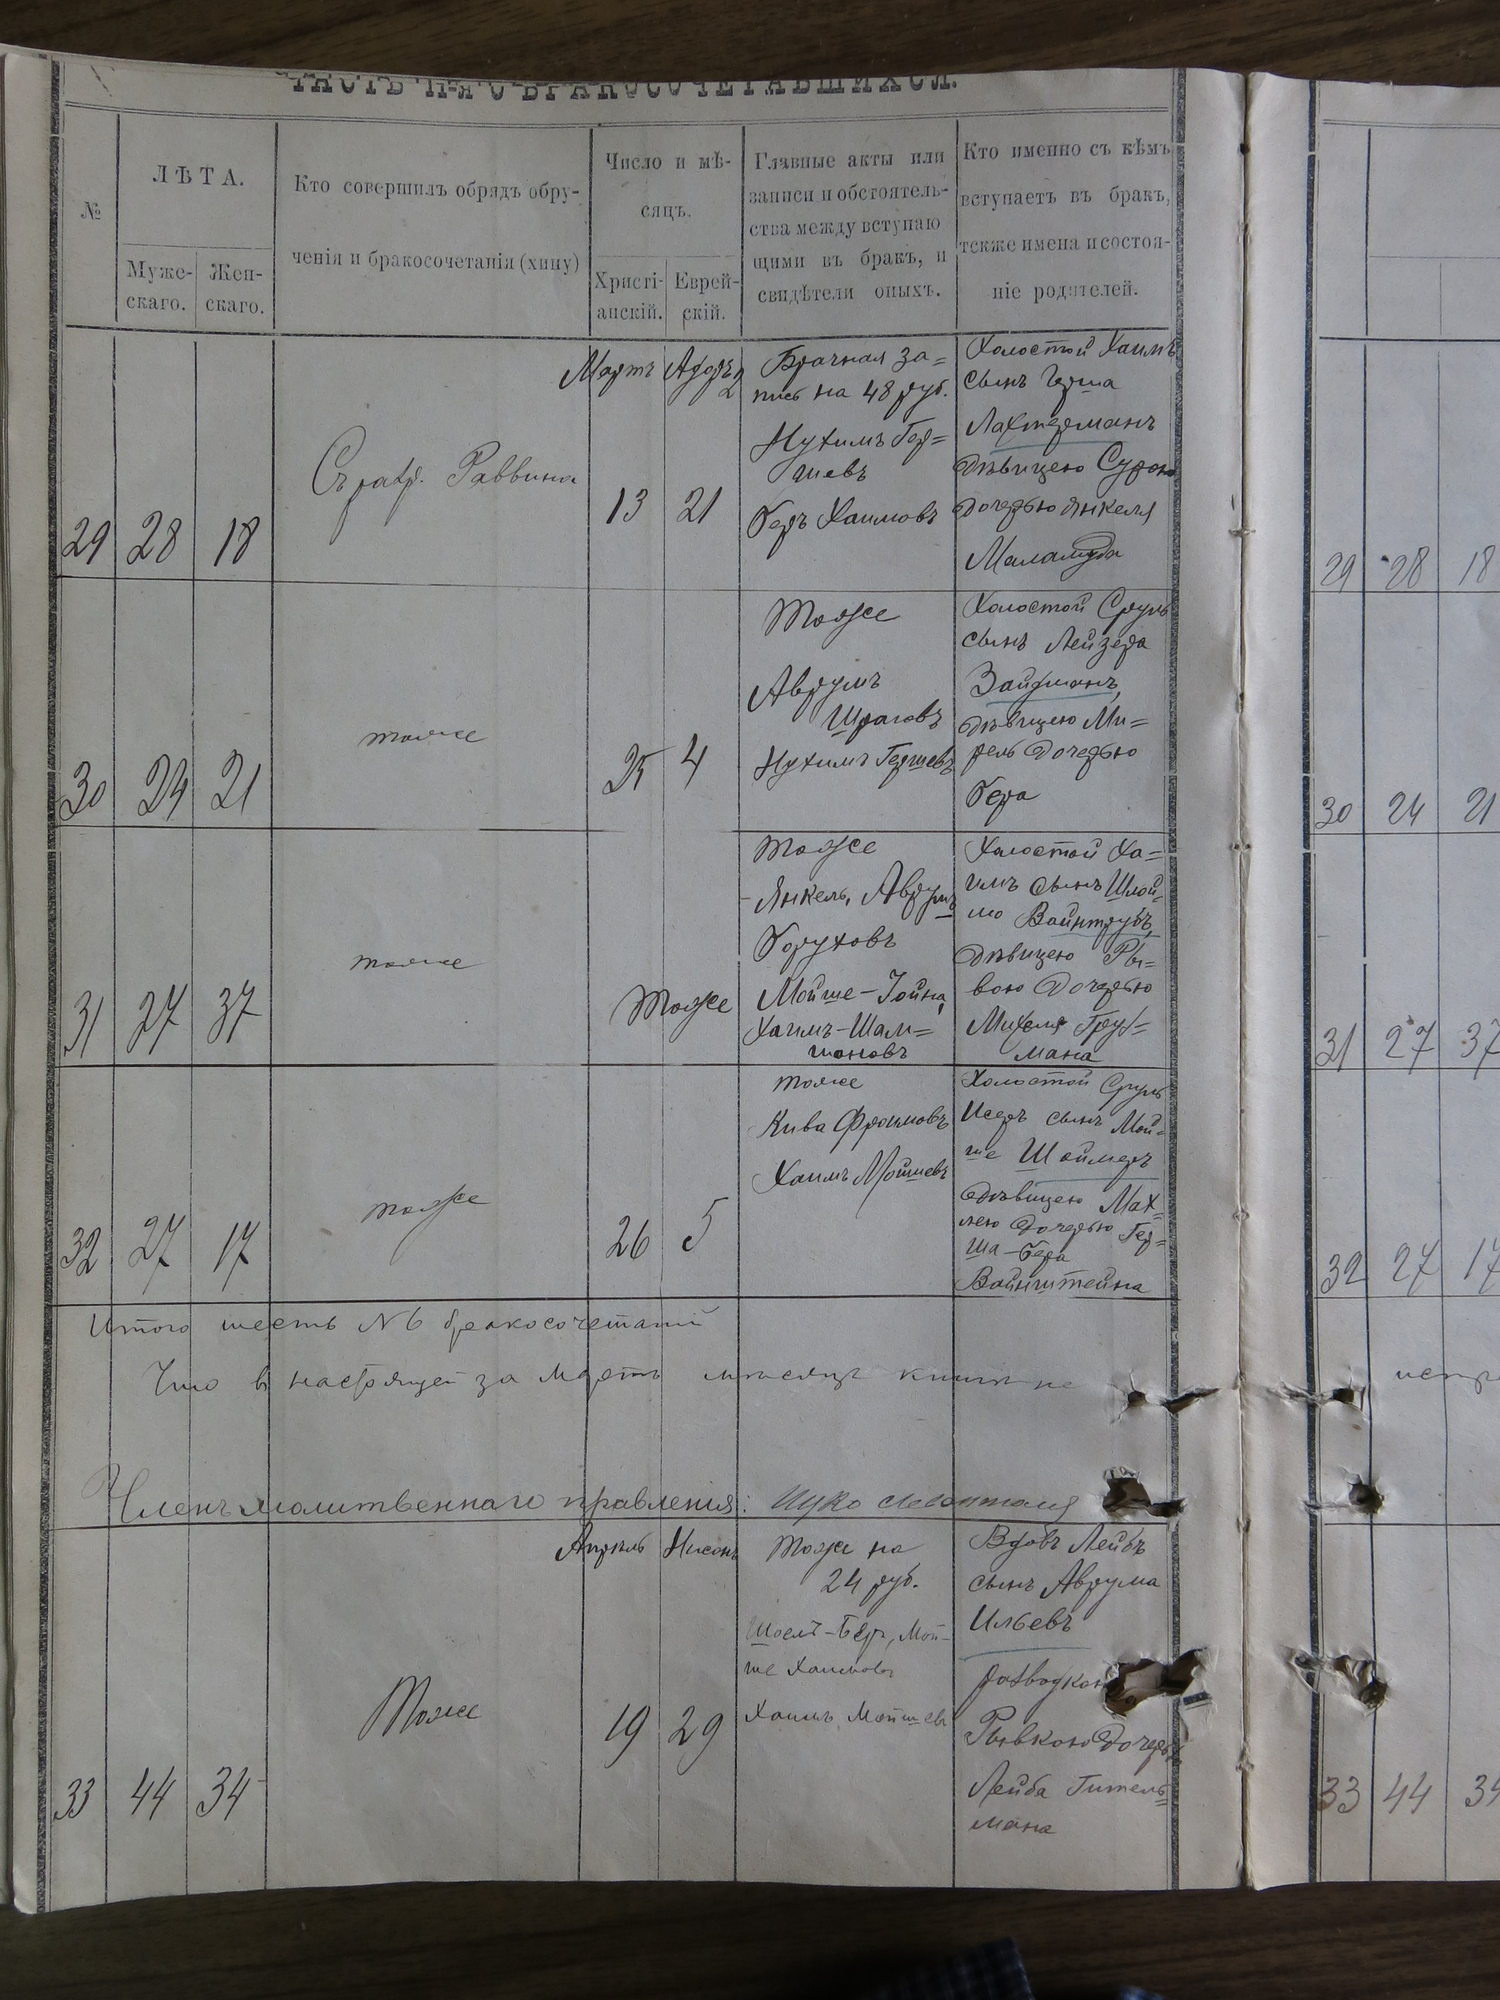 ЧАСТЬ II-я О БРАКОСОЧЕТАВШИХСЯ.
№
ЛѢТА.
Муже-
скаго.
Жен-
скаго.
Кто совершилъ обрядъ обру-
ченія и бракосочетанія (хипу)
Число и мѣ-
сяцъ.
Христі-
анскій.
Еврей-
скій.
Главные акты или
записи и обстоятель-
ства между вступаю
щими въ бракъ, и
свидѣтели оныхъ.
Кто именно съ кѣмъ
вступаетъ въ бракъ,
также имена и состоя-
ніе родителей.
29
28
18
Раввина
Мартъ
13
Адаръ 2
21
Брачная за=
пись на 48 руб.
Нухимъ Гер=
шевъ
Беръ Хаимовъ
Холостой Хаимъ
сынъ Герша
Лахтерманъ
дѣвицею Сурою
дочерью Янкеля
Маламуда
30
24
21
тоже
25
4
Тоже
Аврумъ
Шраговъ
Нухимъ Гершевъ
Холостой Сруль
сынъ Лейзера
Зайдманъ,
дѣвицею Ми=
рель дочерью
Бера
31
27
37
тоже
Тоже
Тоже
Янкель, Аврумъ
Боруховъ
Мойше-Іойна,
Хаимъ-Шам=
шоновъ
Холостой Ха=
имъ сынъ Шлой=
мо Вайнтрубъ,
дѣвицею Ры=
вою дочерью
Михеля Грух=
мана
32
27
17
тоже
26
5
тоже
Кива Фроимовъ
Хаимъ Мойшевъ
Холостой Сруль
Исеръ сынъ Мой=
ше Шоймеръ
дѣвицею Мах=
лею дочерью Гер=
ша-Бера
Вайнштейна
Итого шесть №6 бракосочетаній
Что в настоящей за Мартъ мѣсяцъ книги не
Членъ молитвеннаго правленія:
33
44
34
Тоже
Апрѣль
19
Нисонъ
29
Тоже на
24 руб.
Шоелъ-Беръ, Мой-
ше Хаимовъ
Хаимъ Мойшевъ
Вдовъ Лейбъ
сынъ Аврума
Ильевъ
Рывкою дочерью
Лейба Гитель=
мана
29
28
18
30
24
21
31
27
37
32
27
17
33
44
34